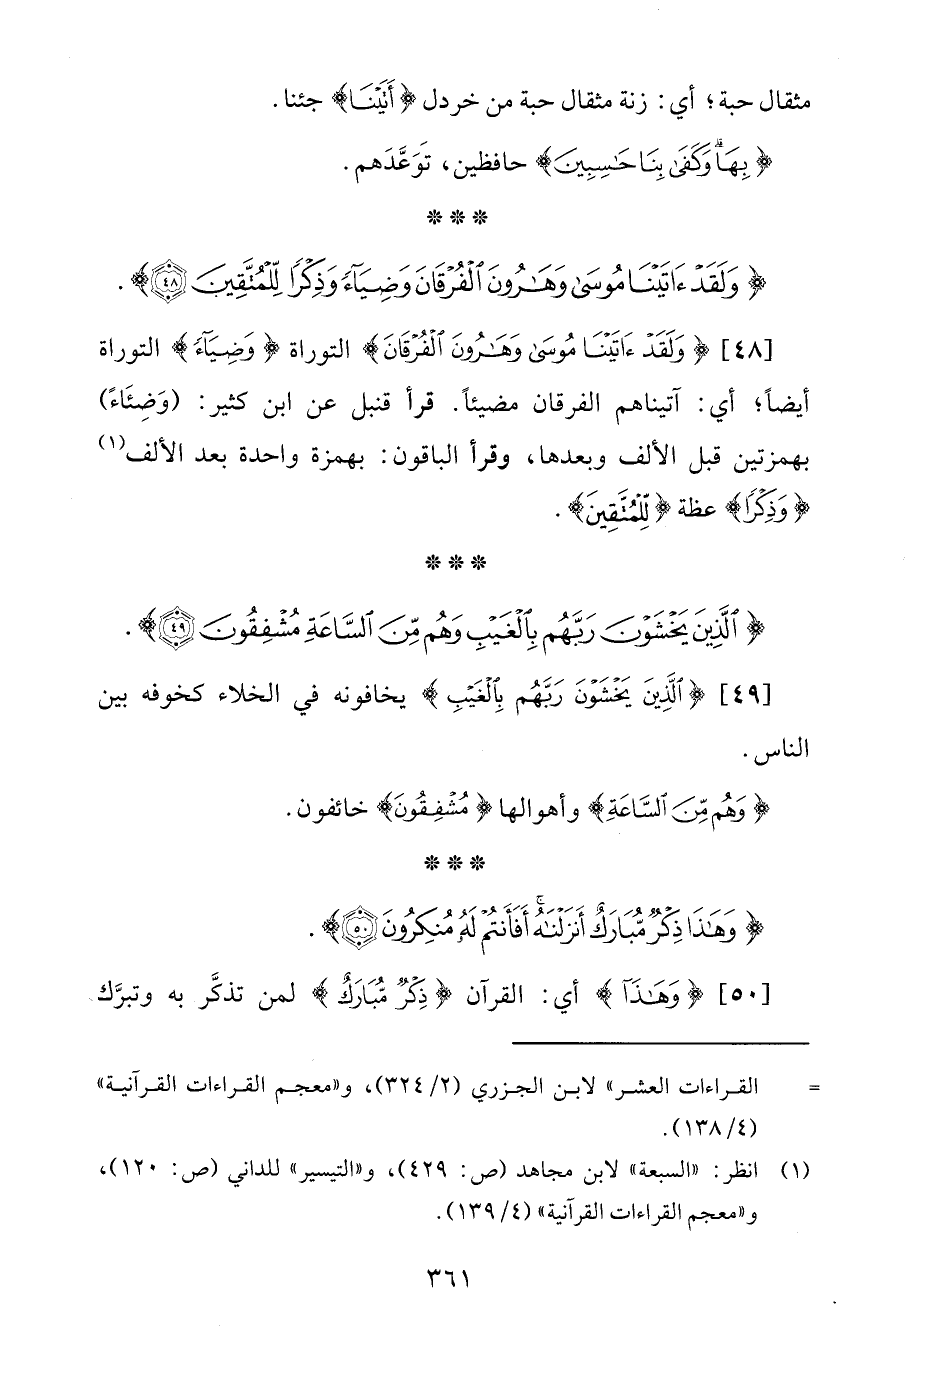 مثقال حبة؛ أي: زنة مثقال حبة من خردل ﴿أَتَيْنَا﴾ جئنا.
﴿بِهَا ۗ وَكَفَىٰ بِنَا حَاسِبِينَ﴾ حافظين، تَوَعَّدَهم.
***
﴿وَلَقَدْ ءَاتَيْنَا مُوسَىٰ وَهَٰرُونَ ٱلْفُرْقَانَ وَضِيَآءً وَذِكْرًا لِّلْمُتَّقِينَ ٤٨﴾.
[٤٨] ﴿وَلَقَدْ ءَاتَيْنَا مُوسَىٰ وَهَٰرُونَ ٱلْفُرْقَانَ﴾ التوراة ﴿وَضِيَآءً﴾ التوراة
أيضاً؛ أي: آتيناهم الفرقان مضيئاً. قرأ قنبل عن ابن كثير: (وَضِئَاءً)
بهمزتين قبل الألف وبعدها، وقرأ الباقون: بهمزة واحدة بعد الألف(١)
﴿وَذِكْرًا﴾ عظة ﴿لِّلْمُتَّقِينَ﴾.
***
﴿ٱلَّذِينَ يَخْشَوْنَ رَبَّهُم بِٱلْغَيْبِ وَهُم مِّنَ ٱلسَّاعَةِ مُشْفِقُونَ ٤٩﴾.
[٤٩] ﴿ٱلَّذِينَ يَخْشَوْنَ رَبَّهُم بِٱلْغَيْبِ﴾ يخافونه في الخلاء كخوفه بين
الناس.
﴿وَهُم مِّنَ ٱلسَّاعَةِ﴾ وأهوالها ﴿مُشْفِقُونَ﴾ خائفون.
***
﴿وَهَٰذَا ذِكْرٌ مُّبَارَكٌ أَنزَلْنَٰهُ ۚ أَفَأَنتُمْ لَهُۥ مُنكِرُونَ ٥٠﴾.
[٥٠] ﴿وَهَٰذَآ﴾ أي: القرآن ﴿ذِكْرٌ مُّبَارَكٌ﴾ لمن تذكَّر به وتبرَّك
= القراءات العشر» لابن الجزري (٢/ ٣٢٤)، و«معجم القراءات القرآنية»
(٤/ ١٣٨).
(١) انظر: «السبعة» لابن مجاهد (ص: ٤٢٩)، و«التيسير» للداني (ص: ١٢٠)،
و«معجم القراءات القرآنية» (٤/ ١٣٩).
٣٦١